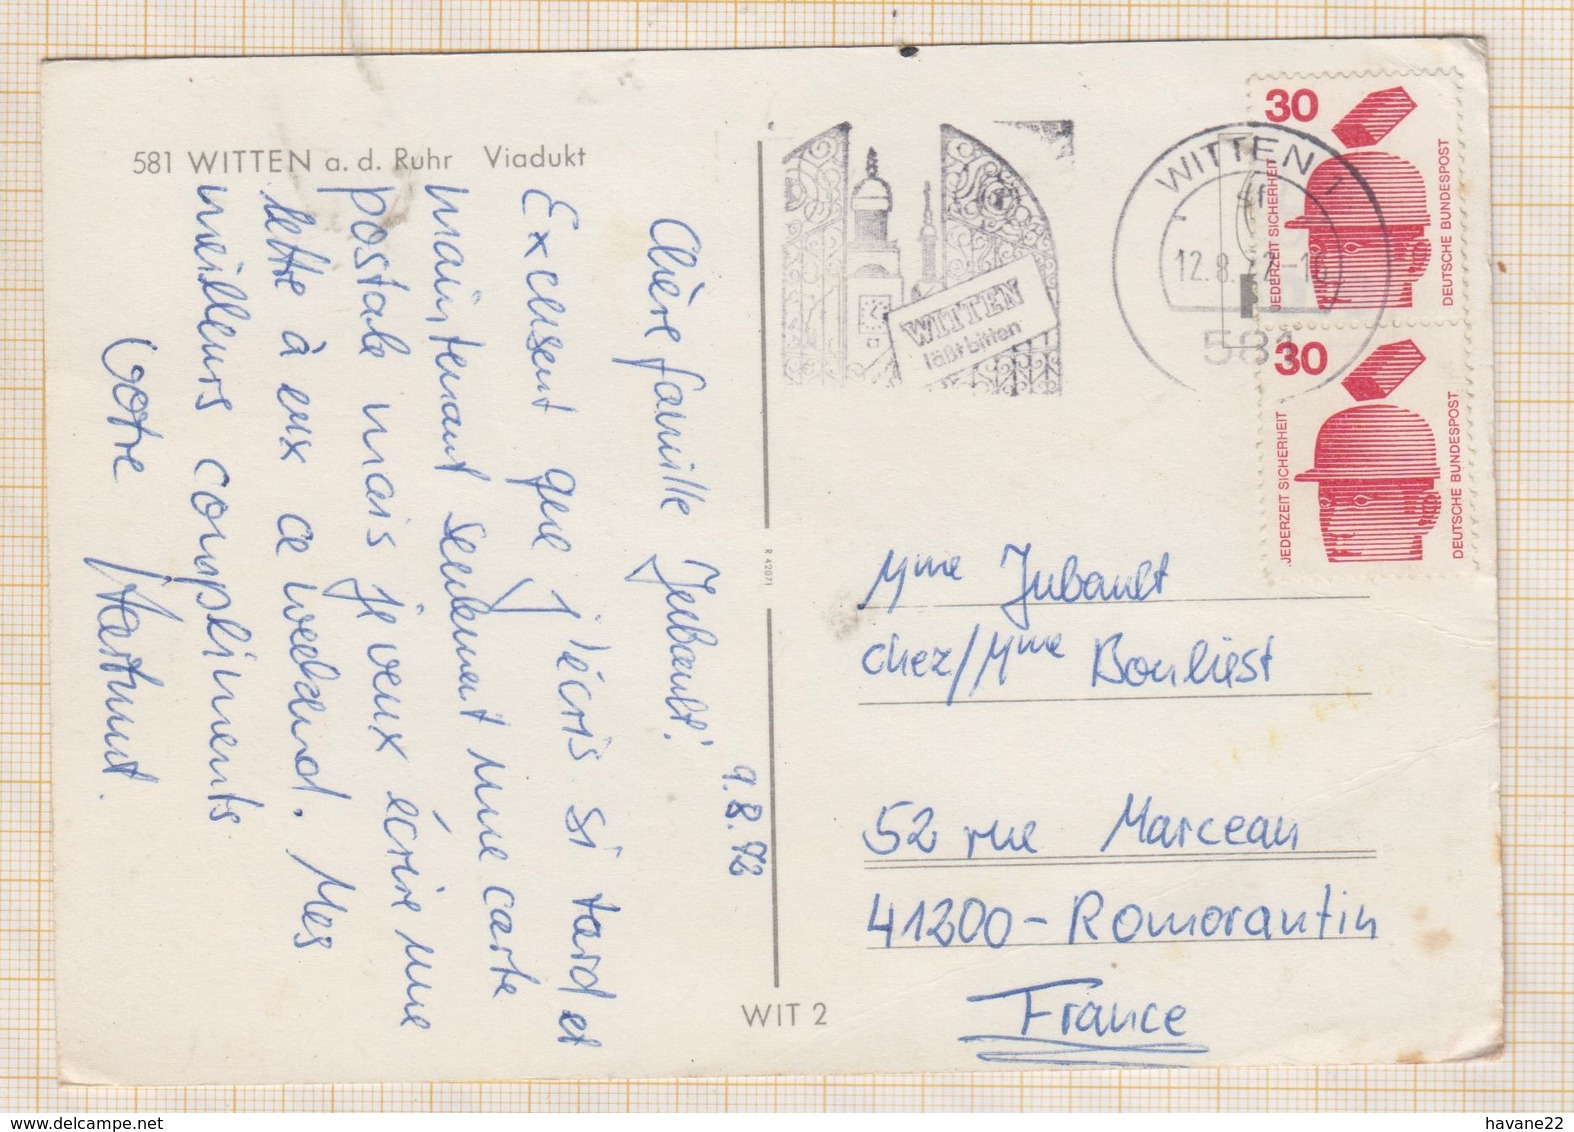 581 WITTEN a. d. Ruhr Viadukt
Chère famille Jubault!
Excusent que j'écris si tard et
maintenant seulement une carte
postale mais je veux écrire une
lette à eux ce weekend. Mes
meilleurs compliments
Votre Hartmut.
9.8.72
R 42071
WIT 2
WITTEN
läßt bitten
WITTEN 1
12.8.
581
30
JEDERZEIT SICHERHEIT
DEUTSCHE BUNDESPOST
30
JEDERZEIT SICHERHEIT
DEUTSCHE BUNDESPOST
Mme Jubault
chez/Mme Bouliest
52 rue Marceau
41200-Romorantin
France
havane22